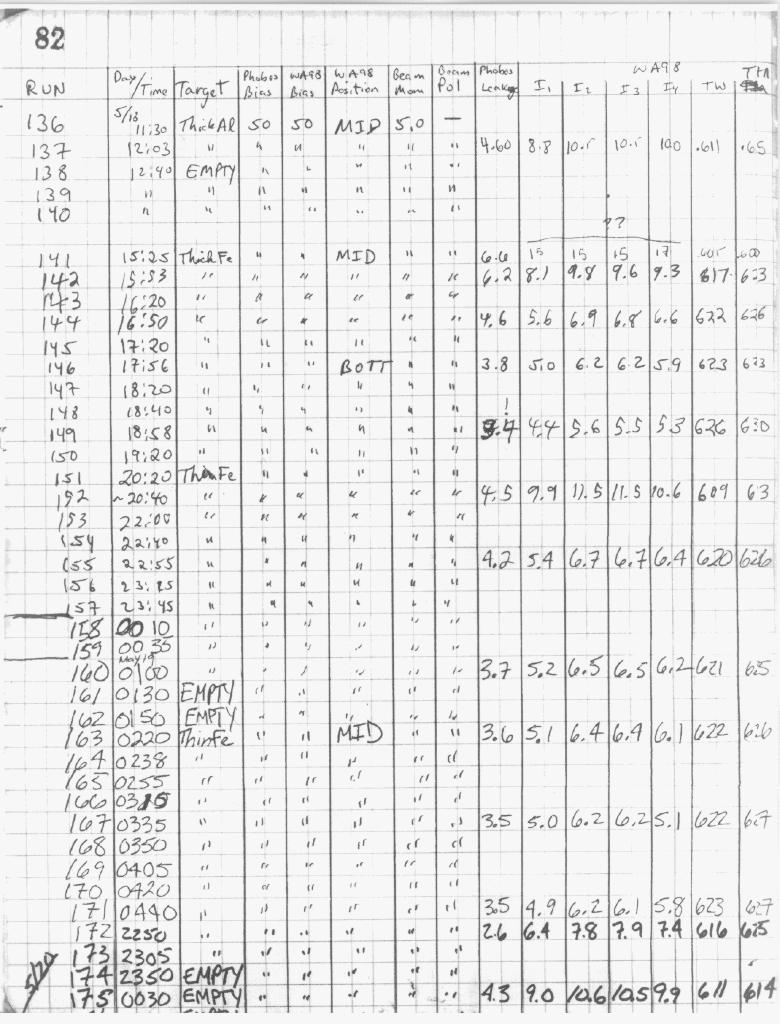 82
RUN Day/Time Target Phobos Bias WA98 Bias WA98 Position Beam Mom Beam Pol Phobos Leakage WA98 I1 I2 I3 I4 TW
136 5/18 11:30 Thick Al 50 50 MID 5.0 —
137 12:03 " " " " " " 4.60 8.8 10.5 10.5 10.0 .611 .65
138 12:40 EMPTY " " " " "
139 " " " " " " "
140 " " " " " " " ??
141 15:25 Thick Fe " " MID " " 6.6 15 15 15 17 .605 .600
142 15:53 " " " " " " 6.2 8.1 9.8 9.6 9.3 617 623
143 16:20 " " " " " "
144 16:50 " " " " " " 4.6 5.6 6.9 6.8 6.6 622 626
145 17:20 " " " " " "
146 17:56 " " " BOTT " " 3.8 5.0 6.2 6.2 5.9 623 633
147 18:20 " " " " " "
148 18:40 " " " " " " !
149 18:58 " " " " " " 3.7 4.4 5.6 5.5 5.3 626 630
150 19:20 " " " " " "
151 20:20 Thin Fe " " " " "
152 ~20:40 " " " " " " 4.5 9.9 11.5 11.5 10.6 609 63
153 22:00 " " " " " "
154 22:40 " " " " " "
155 22:55 " " " " " " 4.2 5.4 6.7 6.7 6.4 620 626
156 23:25 " " " " " "
157 23:45 " " " " " "
158 00 10 " " " " " "
159 00 35 " " " " " "
May 19
160 0100 " " " " " " 3.7 5.2 6.5 6.5 6.2 621 625
161 0130 EMPTY " " " " "
162 0150 EMPTY " " " " "
163 0220 Thin Fe " " MID " " 3.6 5.1 6.4 6.4 6.1 622 626
164 0238 " " " " " "
165 0255 " " " " " "
166 0315 " " " " " "
167 0335 " " " " " " 3.5 5.0 6.2 6.2 5.1 622 627
168 0350 " " " " " "
169 0405 " " " " " "
170 0420 " " " " " "
171 0440 " " " " " " 3.5 4.9 6.2 6.1 5.8 623 627
172 2250 " " " " " " 2.6 6.4 7.8 7.9 7.4 616 625
173 2305 " " " " " "
5/20 174 2350 EMPTY " " " " "
175 0030 EMPTY " " " " " 4.3 9.0 10.6 10.5 9.9 611 614